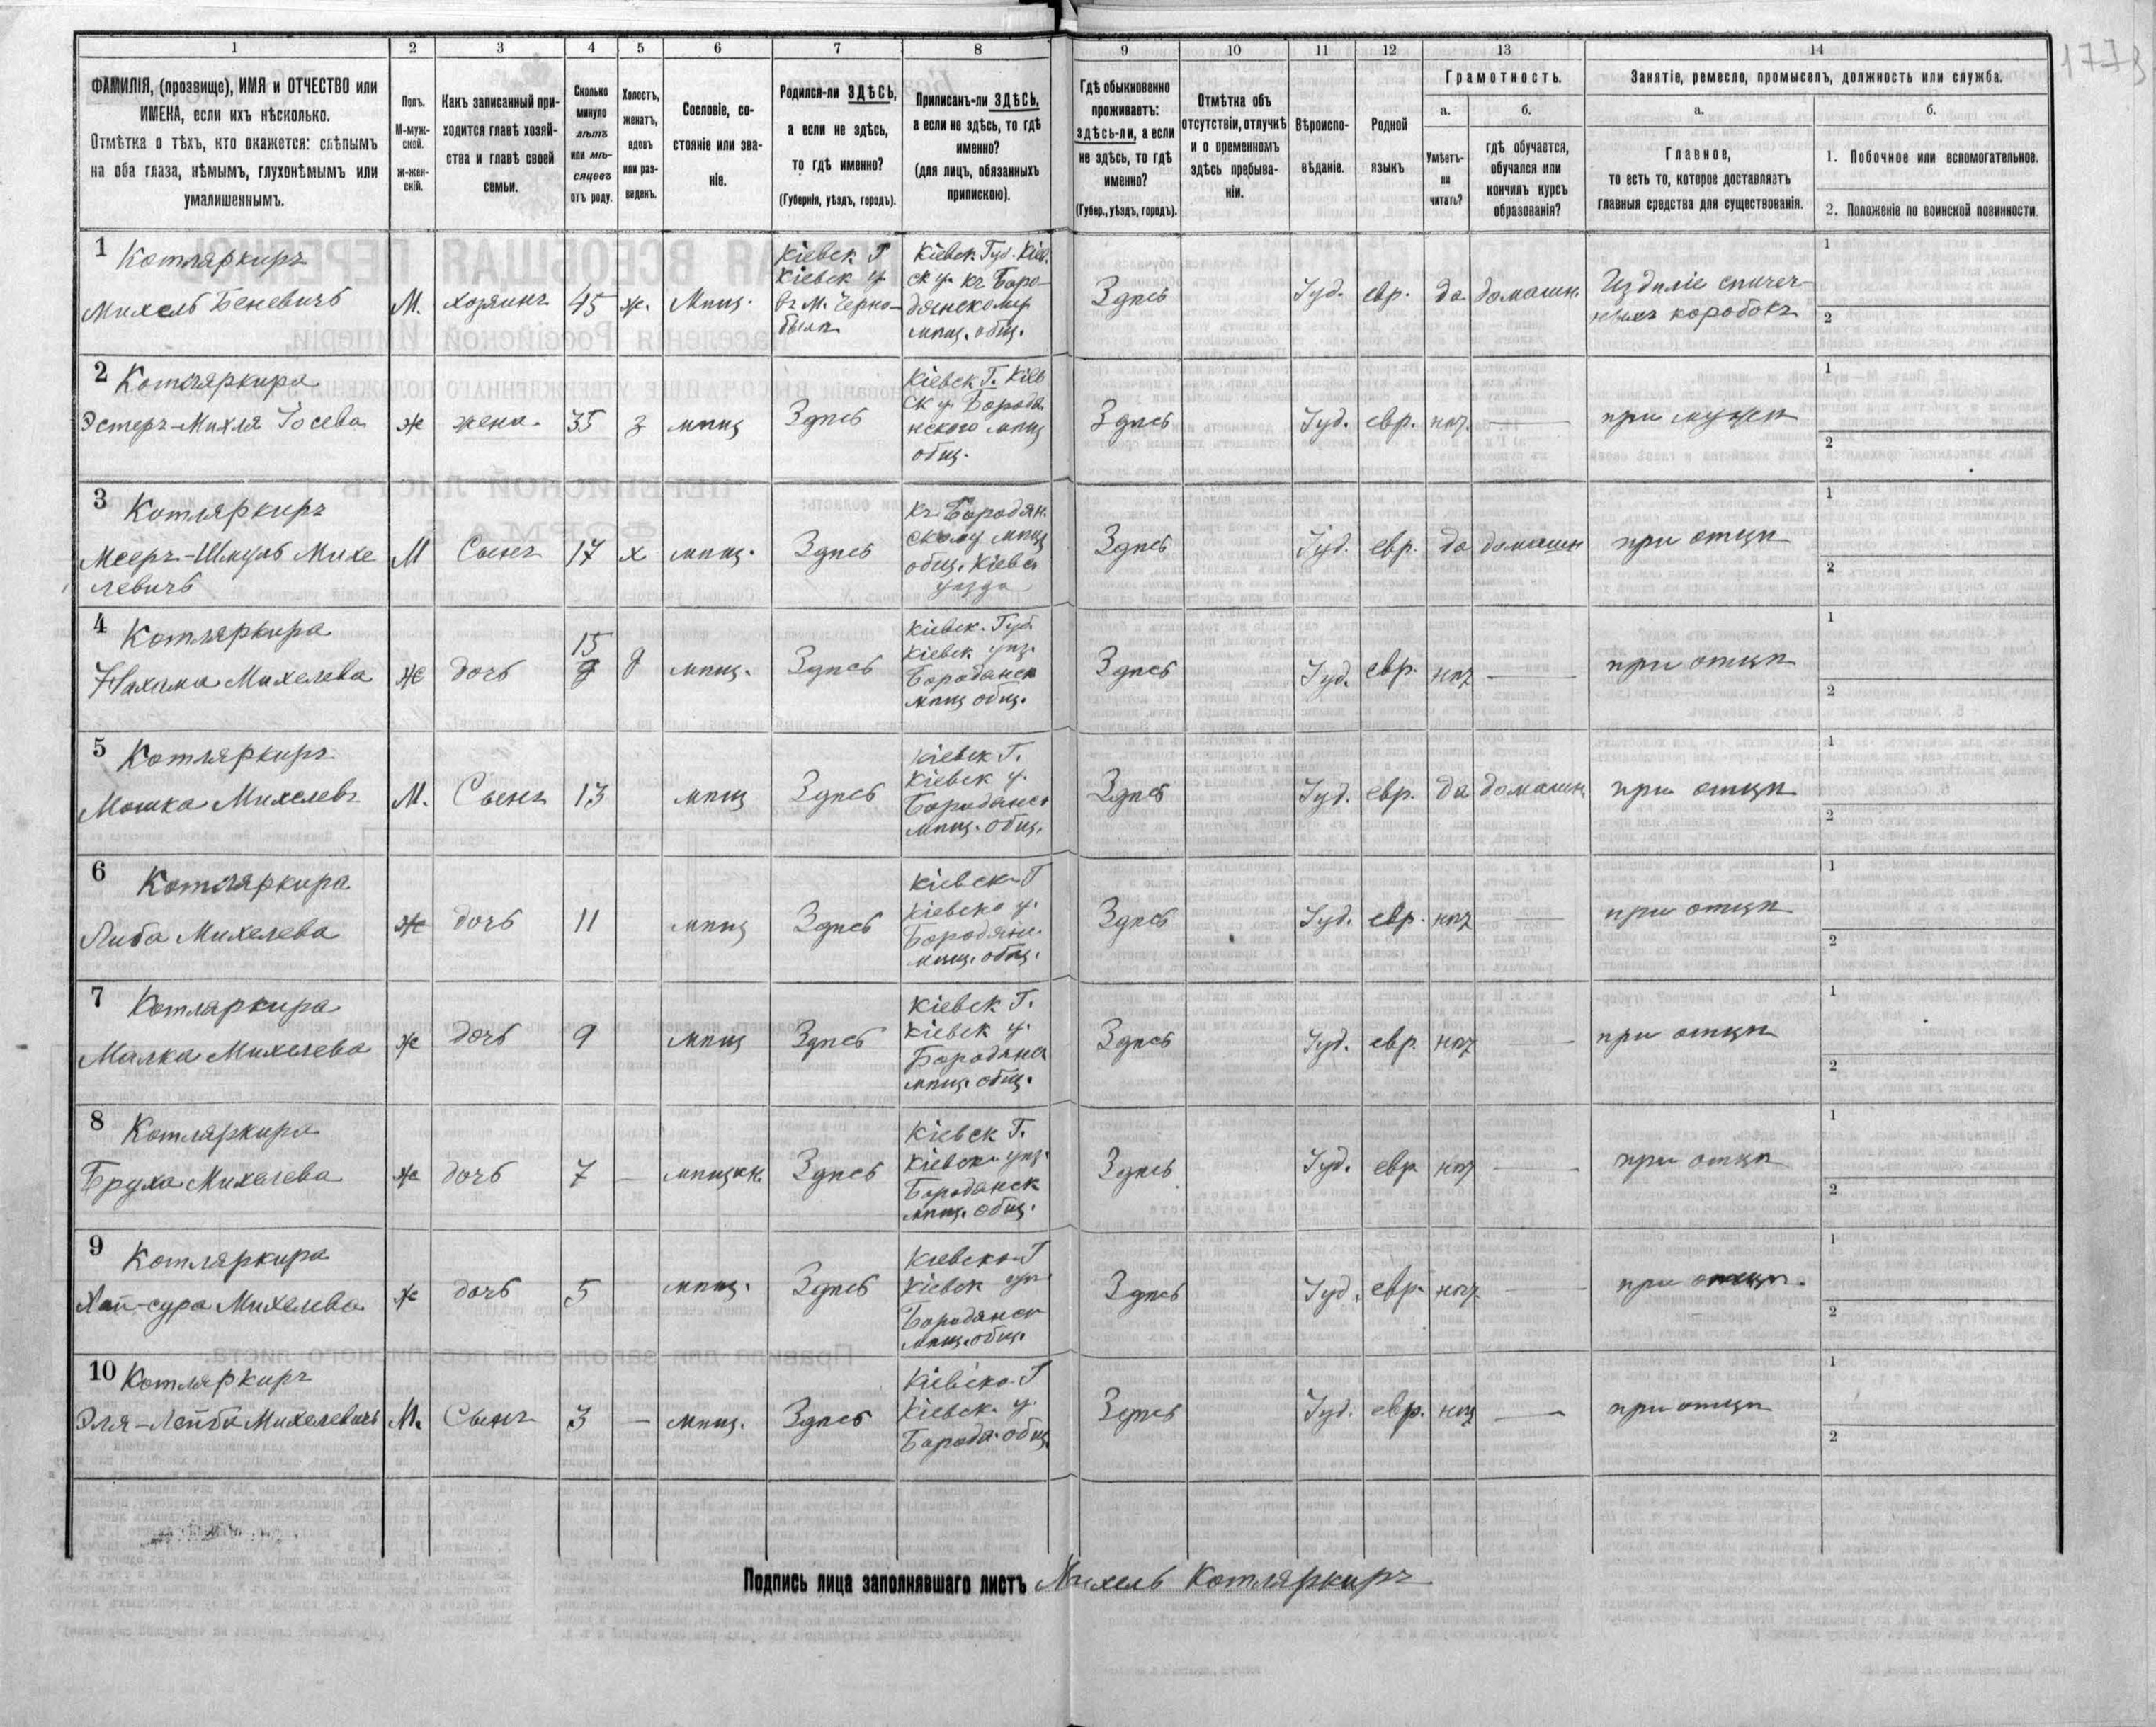 1773
1 2 3 4 5 6 7 8 9 10 11 12 13 14
ФАМИЛІЯ, (прозвище), ИМЯ и ОТЧЕСТВО или
ИМЕНА, если ихъ нѣсколько.
Отмѣтка о тѣхъ, кто окажется: слѣпымъ
на оба глаза, нѣмымъ, глухонѣмымъ или
умалишеннымъ.
Полъ.
М-муж-
ской.
ж-жен-
скій.
Какъ записанный при-
ходится главѣ хозяй-
ства и главѣ своей
семьи.
Сколько
минуло
лѣтъ
или мѣ-
сяцевъ
отъ роду.
Холостъ,
женатъ,
вдовъ
или раз-
веденъ.
Сословіе, со-
стояніе или зва-
ніе.
Родился-ли ЗДѢСЬ,
а если не здѣсь,
то гдѣ именно?
(Губернія, уѣздъ, городъ).
Приписанъ-ли ЗДѢСЬ,
а если не здѣсь, то гдѣ
именно?
(для лицъ, обязанныхъ
припискою).
Гдѣ обыкновенно
проживаетъ:
здѣсь-ли, а если
не здѣсь, то гдѣ
именно?
(Губер., уѣздъ, городъ).
Отмѣтка объ
отсутствіи, отлучкѣ
и о временномъ
здѣсь пребыва-
ніи.
Вѣроиспо-
вѣданіе.
Родной
языкъ
Грамотность.
а.
Умѣетъ-
ли
читать?
б.
гдѣ обучается,
обучался или
кончилъ курсъ
образованія?
Занятіе, ремесло, промыселъ, должность или служба.
а.
Главное,
то есть то, которое доставляетъ
главныя средства для существованія.
б.
1. Побочное или вспомогательное.
2. Положеніе по воинской повинности.
1 Котляркиръ
Михель Беневичъ М. хозяинъ 45 ж. Мѣщ.
Кіевск Г
Кіевск у.
въ М. Черно-
былѣ
Кіевск. Губ. Кіев.
ск у. къ Боро-
дянскому
мѣщ. общ.
Здѣсь Іуд. евр. да домашн.
Издѣліе спичеч-
ныхъ коробокъ
1
2
2 Котляркира
Эстеръ-Михля Іосева ж жена. 35 з мѣщ Здѣсь
Кіевск Г. Кіев
ск у. Бородя
нского мѣщ
общ.
Здѣсь Іуд. евр. нѣт. — при мужѣ
1
2
3 Котляркиръ
Мееръ-Шмуль Михе
левичъ М Сынъ 17 х мѣщ. Здѣсь
къ Бородян.
скому мѣщ
общ. Кіевск
уѣзда
Здѣсь Іуд. евр. да домашн при отцѣ
1
2
4 Котляркира
Нахама Михелева ж дочь 15 д мѣщ. Здѣсь
Кіевск. Губ.
Кіевск уѣз.
Бородянск
мѣщ общ.
Здѣсь Іуд. евр. нѣт — при отцѣ
1
2
5 Котляркиръ
Мошка Михелевъ М. Сынъ 13 мѣщ Здѣсь
Кіевск Г.
Кіевск у.
Бородянск
мѣщ. общ.
Здѣсь Іуд. евр. да домашн. при отцѣ
1
2
6 Котляркира
Либа Михелева ж дочь 11 мѣщ Здѣсь
Кіевск Г
Кіевск у.
Бородянс.
мѣщ. общ.
Здѣсь Іуд. евр. нѣт — при отцѣ
1
2
7 Котляркира
Малка Михелева ж дочь 9 мѣщ Здѣсь
Кіевск Г.
Кіевск у.
Бородянск
мѣщ. общ.
Здѣсь Іуд. евр. нѣт — при отцѣ
1
2
8 Котляркира
Бруха Михелева ж дочь 7 — мѣщан. Здѣсь
Кіевск Г.
Кіевск уѣз.
Бородянск
мѣщ. общ.
Здѣсь Іуд. евр нѣт — при отцѣ
1
2
9 Котляркира
Хая-сура Михелева ж дочь 5 мѣщ. Здѣсь
Кіевск Г
Кіевск уѣ
Бородянск
мѣщ. общ.
Здѣсь Іуд. евр. нѣт — при отцѣ.
1
2
10 Котляркиръ
Эля-Лейба Михелевичъ М. Сынъ 3 — мѣщ. Здѣсь
Кіевск Г
Кіевск. у.
Бородя. общ
Здѣсь Іуд. евр. нѣт — при отцѣ
1
2
Подпись лица заполнявшаго листъ Михель Котляркиръ